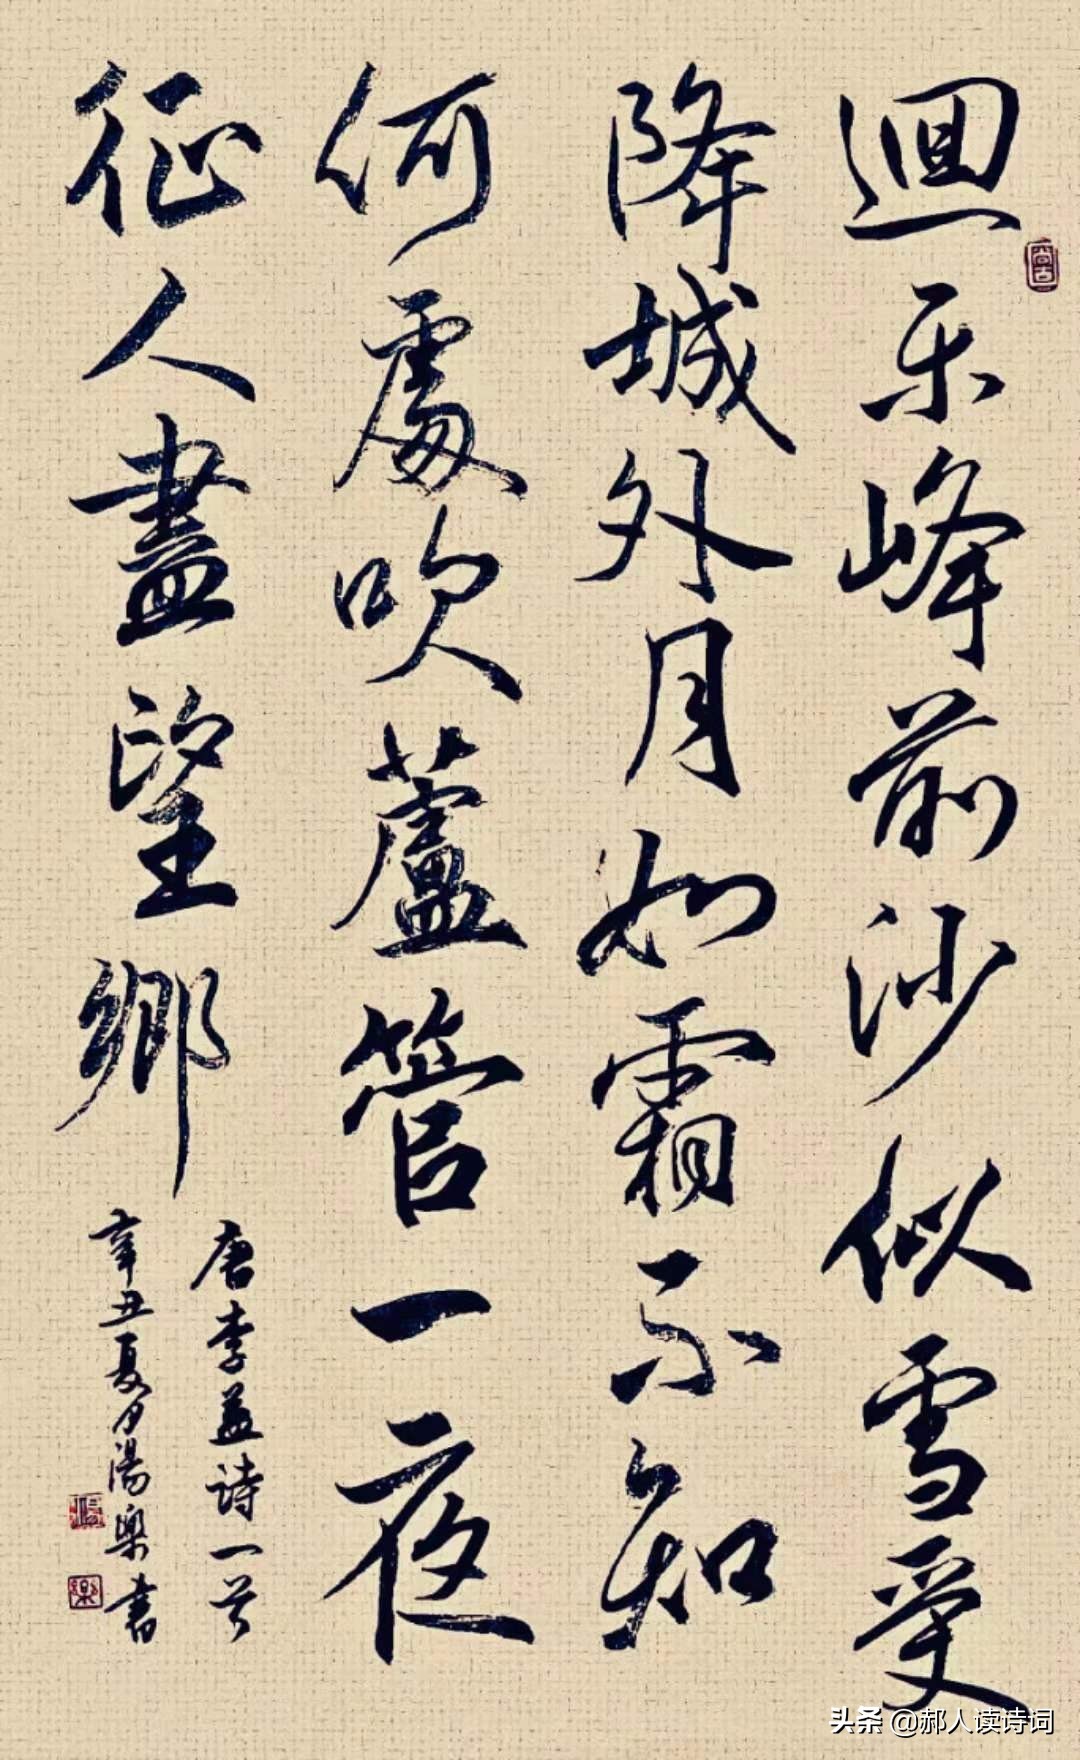 迴乐峰前沙似雪受
降城外月如霜不知
何處吹蘆管一夜
征人盡望鄉
唐李益诗一首
辛丑夏月湯樂書
尚古
头条 @郝人读诗词